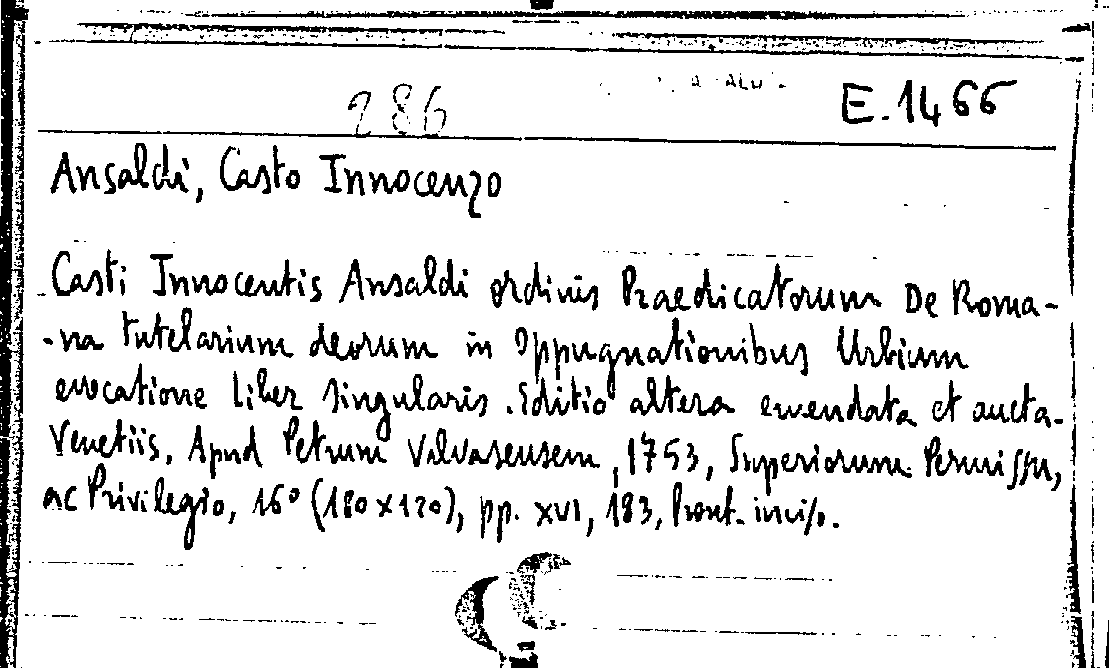 286 E.1466
Ansaldi, Casto Innocenzo
Casti Innocentis Ansaldi ordinis Praedicatorum De Roma-
-na tutelarium deorum in Oppugnationibus Urbium
evocatione liber singularis. Editio altera emendata et aucta.
Venetiis, Apud Petrum Valvasensem, 1753, Superiorum Permissu,
ac Privilegio, 16° (180x120), pp. XVI, 183, Front. inciso.